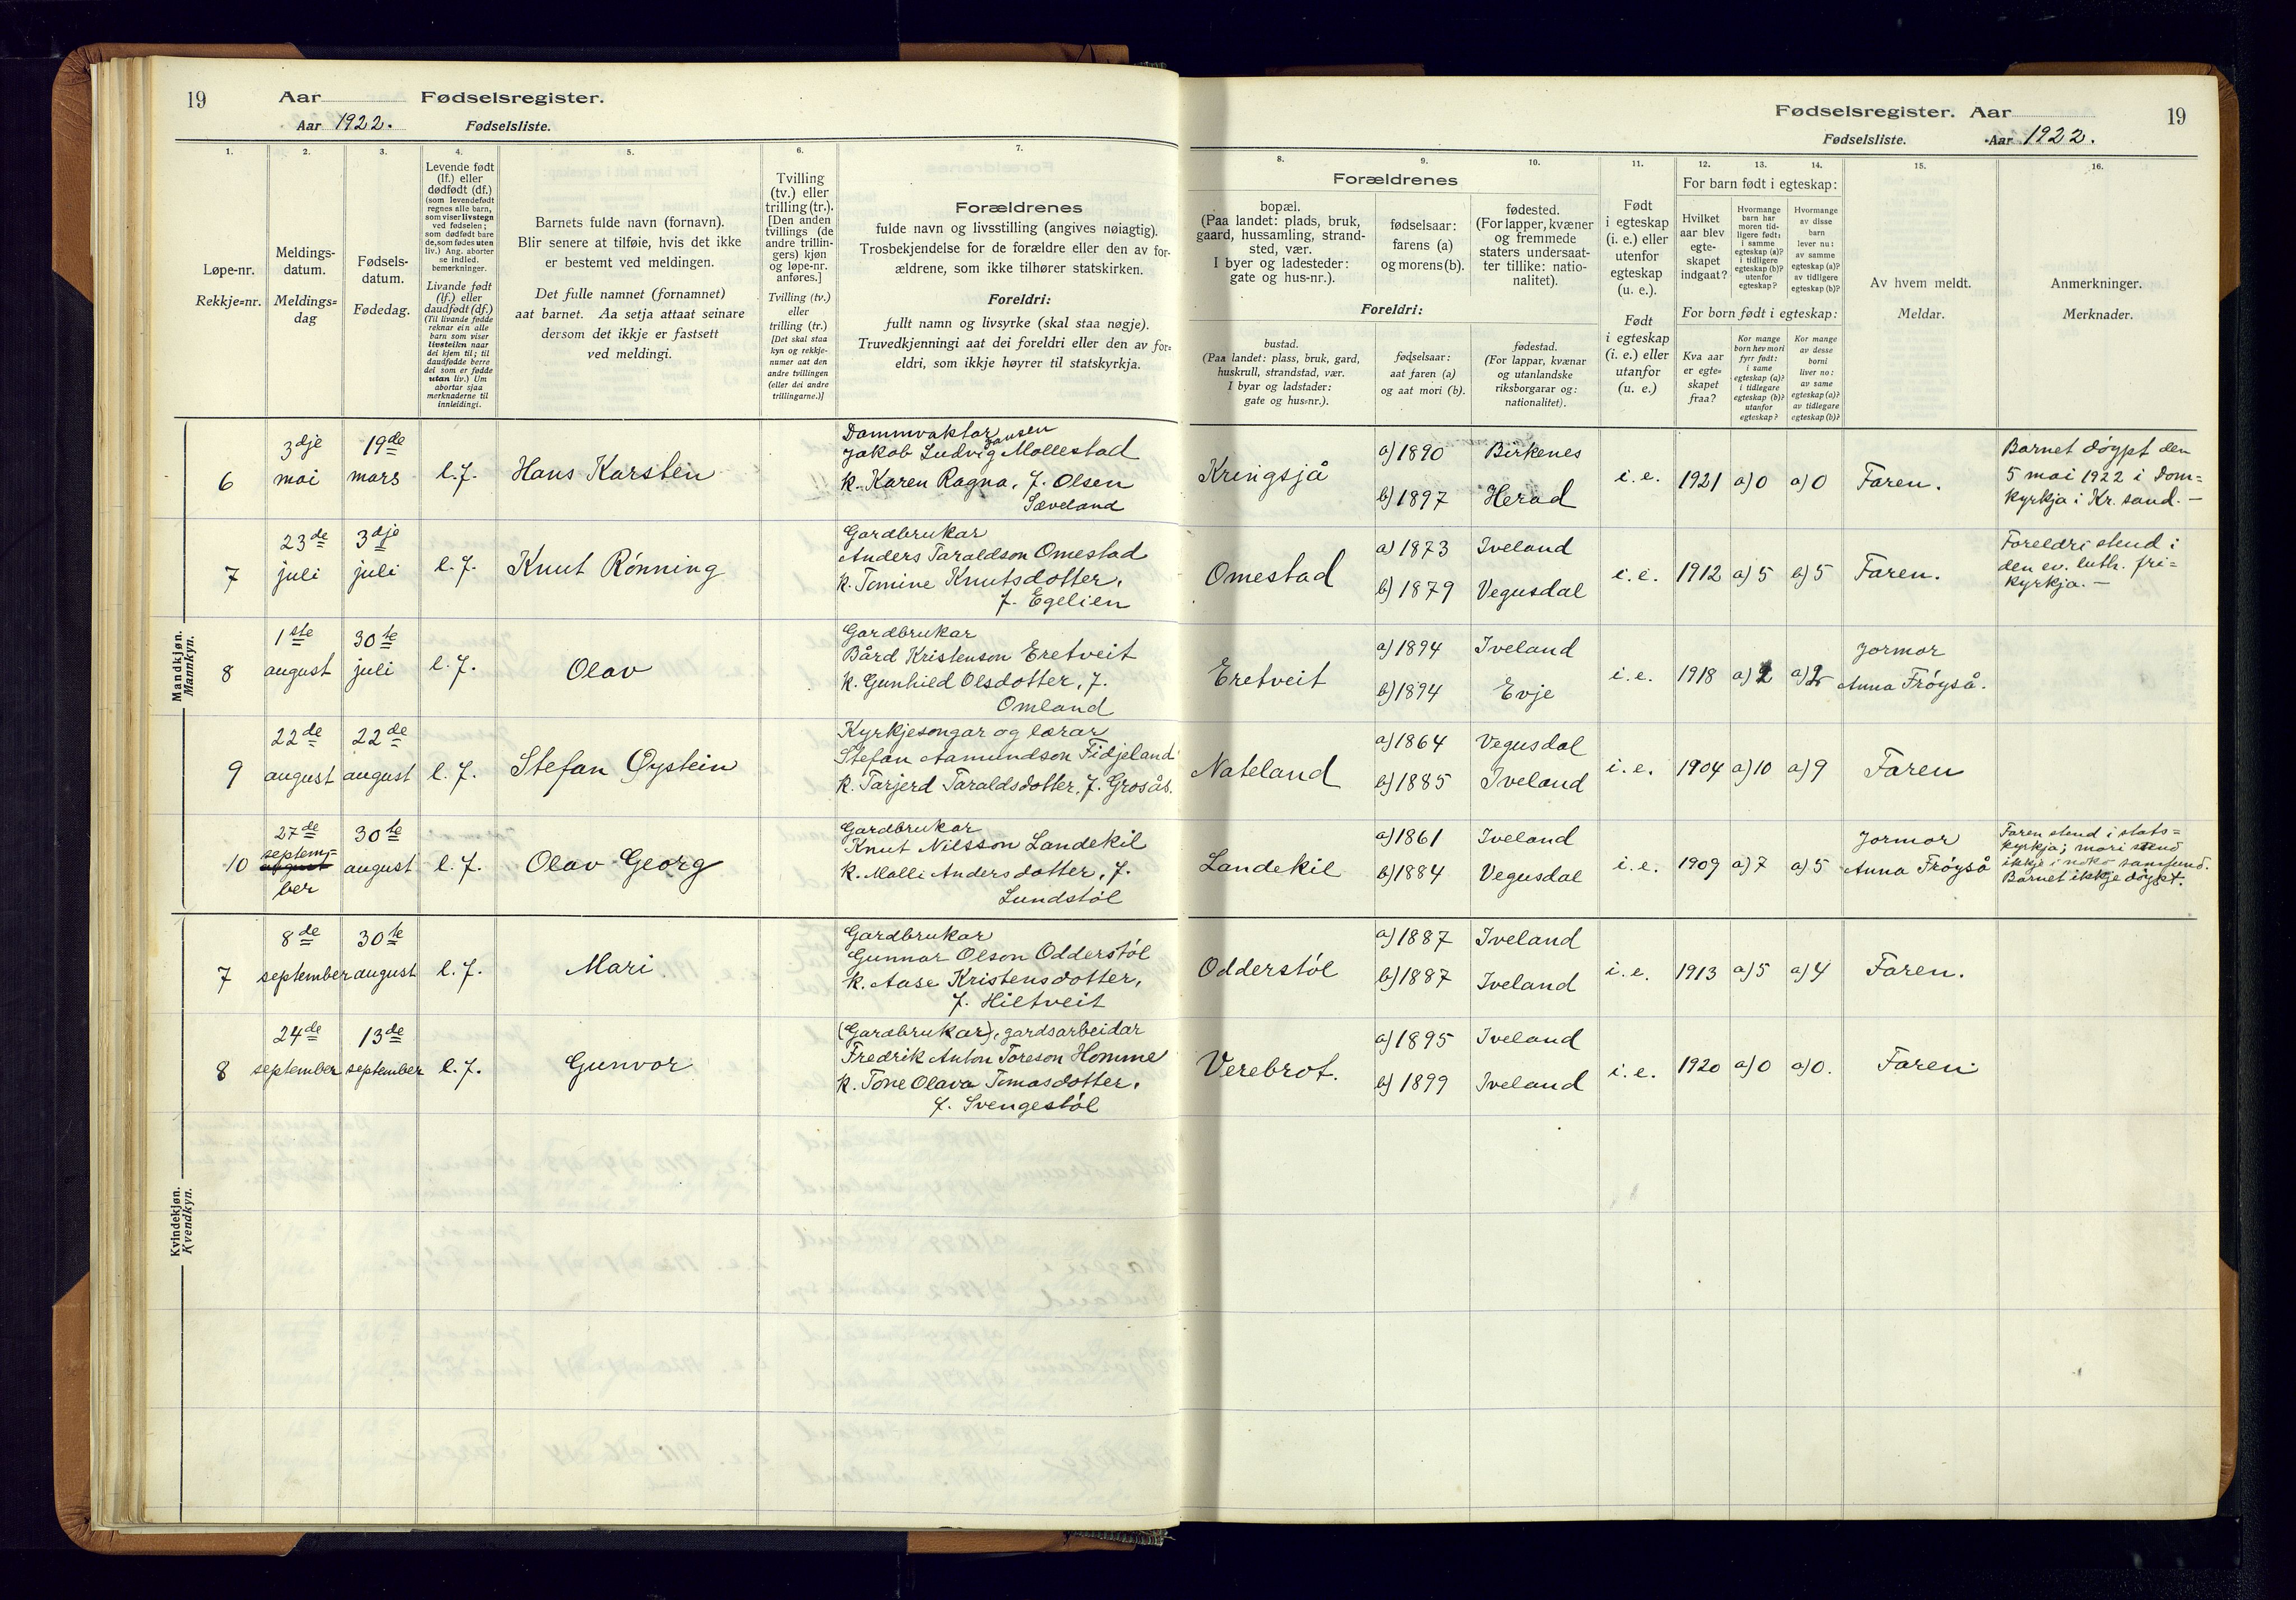 19 Aar Fødselsregister.
Aar 1922. Fødselsliste.
Fødselsregister. Aar 19
Fødselsliste. Aar 1922.
1. 2. 3. 4. 5. 6. 7.
8. 9. 10. 11. 12. 13. 14. 15. 16.
Løpe-nr.
Rekkje=nr.
Meldings-
datum.
Meldings=
dag
Fødsels-
datum.
Fødedag.
Levende født
(lf.) eller
dødfødt (df.)
(som levendefødt
regnes alle barn,
som viser livstegn
ved fødselen;
som dødfødt bare
de, som fødes uten
liv.) Ang. aborter
se indled.
bemerkninger.
Livande født
(lf.) eller
daudfødt (df.)
(Til livande fødde
reknar ein alle
barn som viser
livsteikn naar
dei kjem til; til
daudfødde berre
dei som er fødde
utan liv.) Um
abortar sjaa
merknaderne til
innleidingi.
Barnets fulde navn (fornavn).
Blir senere at tilføie, hvis det ikke
er bestemt ved meldingen.
Det fulle namnet (fornamnet)
aat barnet. Aa setja attaat seinare
dersom det ikkje er fastsett
ved meldingi.
Tvilling
(tv.) eller
trilling (tr.).
[Den anden
tvillings (de
andre trillin-
gers) kjøn
og løpe-nr.
anføres.]
Tvilling (tv.)
eller
trilling (tr.)
[Det skal staa
kyn og rekkje-
numer aat den
andre tvillingen
(eller dei andre
trillingarne.)]
Forældrenes
fulde navn og livsstilling (angives nøiagtig).
Trosbekjendelse for de forældre eller den av for-
ældrene, som ikke tilhører statskirken.
Foreldri:
fullt namn og livsyrke (skal staa nøgje).
Truvedkjenningi aat dei foreldri eller den av for=
eldri, som ikkje høyrer til statskyrkja.
Forældrenes
bopæl.
(Paa landet: plads, bruk,
gaard, hussamling, strand-
sted, vær.
I byer og ladesteder:
gate og hus-nr.).
fødselsaar:
farens (a)
og morens (b).
fødested.
(For lapper, kvæner
og fremmede
staters undersaat-
ter tillike: natio-
nalitet).
Foreldri:
bustad.
(Paa landet: plass, bruk, gard,
huskrull, strandstad, vær.
I byar og ladstader:
gate og hus-nr.).
fødselsaar:
aat faren (a)
og aat mori (b).
fødestad.
(For lappar, kvænar
og utanlandske
riksborgarar og:
nationalitet).
Født
i egteskap
(i. e.) eller
utenfor
egteskap
(u. e.).
Født
i egteskap
(i. e.) eller
utanfor
(u. e.)
For barn født i egteskap:
Hvilket
aar blev
egte-
skapet
indgaat?
Hvormange
barn har
moren tid-
ligere født:
i samme
egteskap (a)?
i tidligere
egteskap (b)?
utenfor
egteskap?
Hvormange
av disse
barn
lever nu:
av samme
egteskap (a)?
av tidligere
egteskap (b)?
For born født i egteskap:
Kva aar
er egte=
skapet
fraa?
Kor mange
born hev mori
fyrr født:
i same
egteskap (a)?
i tidlegare
egteskap (b)?
utanfor
egteskap?
Kor mange
av desse
borni
liver no:
av same
egteskap (a)?
av tidlegare
egteskap (b)?
Av hvem meldt.
Meldar.
Anmerkninger.
Merknader.
Mandkjøn.
Mannkyn.
6 3dje mai 19de mars l.f. Hans Karsten
Dammvaktar
Jakob Ludvig Jansen Mollestad
k. Karen Ragna, f. Olsen
Sæveland
Kringsjå a) 1890 Birkenes
b) 1897 Herad
i. e. 1921 a) 0 a) 0 Faren.
Barnet døypt den
5 mai 1922 i Dom=
kyrkja i Kr. sand. —
7 23de juli 3dje juli l.f. Knut Rønning
Gardbrukar
Anders Taraldson Omestad
k. Tomine Knutsdotter,
f. Egelien
Omestad a) 1873 Iveland
b) 1879 Vegusdal
i. e. 1912 a) 5 b) 5 Faren.
Foreldri stend i
den ev. luth. fri=
kyrkja. —
8 1ste august 30te juli l.f. Olav
Gardbrukar
Bård Kristenson Eretveit
k. Gunhild Olsdotter, f.
Omland
Eretveit a) 1894 Iveland
b) 1894 Evje
i. e. 1918 a) 2 a) 2 Jormor
Anna Frøyså.
9 22de august 22de august l.f. Stefan Øystein
Kyrkjesongar og lærar
Stefan Aamundson Fidjeland
k. Tarjerd Taraldsdotter, f. Grosås.
Nateland a) 1864 Vegusdal
b) 1885 Iveland
i. e. 1904 a) 10 a) 9 Faren
10 27de septem=
august
ber 30te august l.f. Olav Georg
Gardbrukar
Knut Nilsson Landekil
k. Malli Andersdotter, f.
Lundstøl
Landekil a) 1861 Iveland
b) 1884 Vegusdal
i. e. 1909 a) 7 a) 5 Jormor
Anna Frøyså
Faren stend i stats=
kyrkja; mori stend
ikkje i noko samfund.
Barnet ikkje døypt.
Kvindekjøn.
Kvendkyn.
7 8de september 30te august l.f. Mari
Gardbrukar
Gunnar Olson Odderstøl
k. Aase Kristensdotter,
f. Hiltveit
Odderstøl a) 1887 Iveland
b) 1887 Iveland
i. e. 1913 a) 5 a) 4 Faren.
8 24de september 13de september l.f. Gunvor
(Gardbrukar), gardsarbeidar
Fredrik Anton Toreson Homme
k. Tone Olava Tomasdotter,
f. Svengestøl
Verebrot. a) 1895 Iveland
b) 1899 Iveland
i. e. 1920 a) 0 a) 0. Faren.